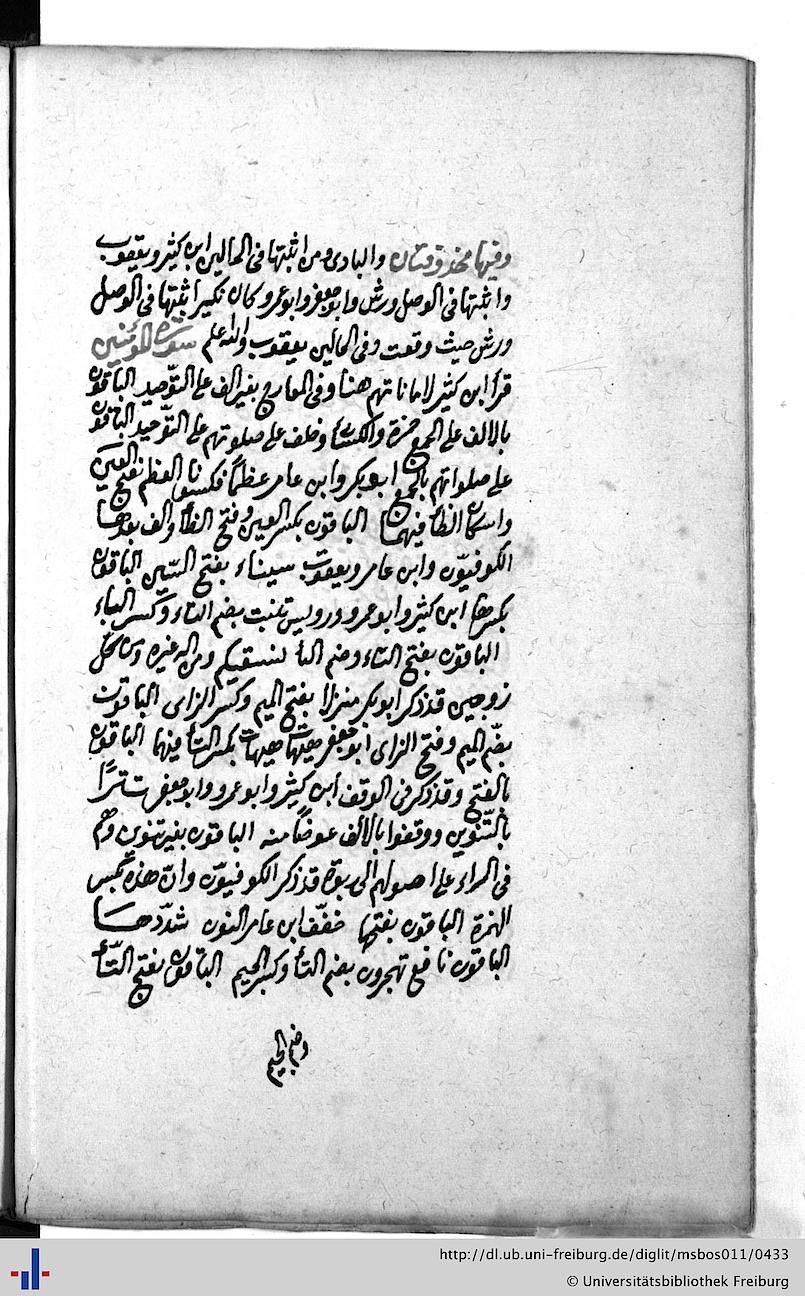 وفيها محذوفتان والبادى ومن اثبتها فى الحالين ابن كثير ويعقوب
واثبتها فى الوصل ورش وابوجعفر وابوعمرو كان نكير اثبتها فى الوصل
ورش حيث وقعت وفى الحالين يعقوب والله اعلم سورة المؤمنين
قرأ ابن كثير لاماناتهم هنا وفى المعارج بغير الف على التوحيد الباقون
بالالف على الجمع حمزة والكسائى وخلف على صلوتهم على التوحيد الباقون
على صلواتهم بالجمع ابوبكر وابن عامر عظمًا فكسونا العظم بفتح العين
واسكان الظا فيهما الباقون بكسر العين وفتح الظا والف بعدها
الكوفيّون وابن عامر ويعقوب سيناء بفتح السّين الباقون
بكسرها ابن كثير وابوعمرو ورويس تنبت بضم التاء وكسر الباء
الباقون بفتح التاء وضم البا لنسقيكم ومن اله غيره ومن كل
زوجين قد ذكر ابوبكر منزلا بفتح الميم وكسر الزاى الباقون
بضّم الميم وفتح الزاى ابوجعفر هيهات هيهات بكسر التا فيهما الباقون
بالفتح وقد ذكر فى الوقف ابن كثير وابوعمرو وابوجعفر تترًا
بالتّنوين ووقفوا بالالف عوضًا منه الباقون بغير تنوين وهم
فى الراء على اصولهم الى ربوة قد ذكر الكوفيّون وانّ هذه بكسر
الهمزة الباقون بفتحها خفّف ابن عامر النون شدّدها
الباقون نافع تهجرون بضم التا وكسر الجيم الباقون بفتح التّا
وضم الجيم
http://dl.ub.uni-freiburg.de/diglit/msbos011/0433
© Universitätsbibliothek Freiburg